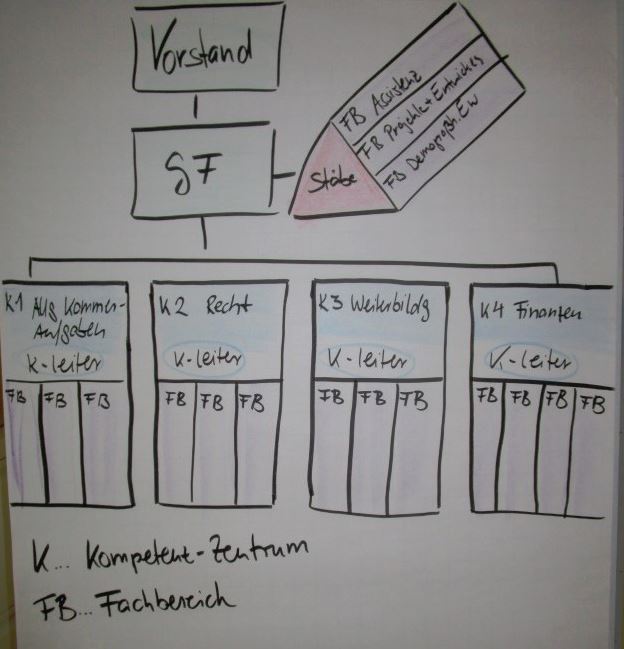 Vorstand
GF
Stäbe
FB Assistenz
FB Projekte+Entwickl
FB Demograph. Ew
K1 Allg Kammer-
Aufgaben
K-leiter
FB FB FB
K2 Recht
K-leiter
FB FB FB
K3 Weiterbildg
K-leiter
FB FB FB
K4 Finanzen
K-leiter
FB FB FB FB
K... Kompetenz-Zentrum
FB... Fachbereich